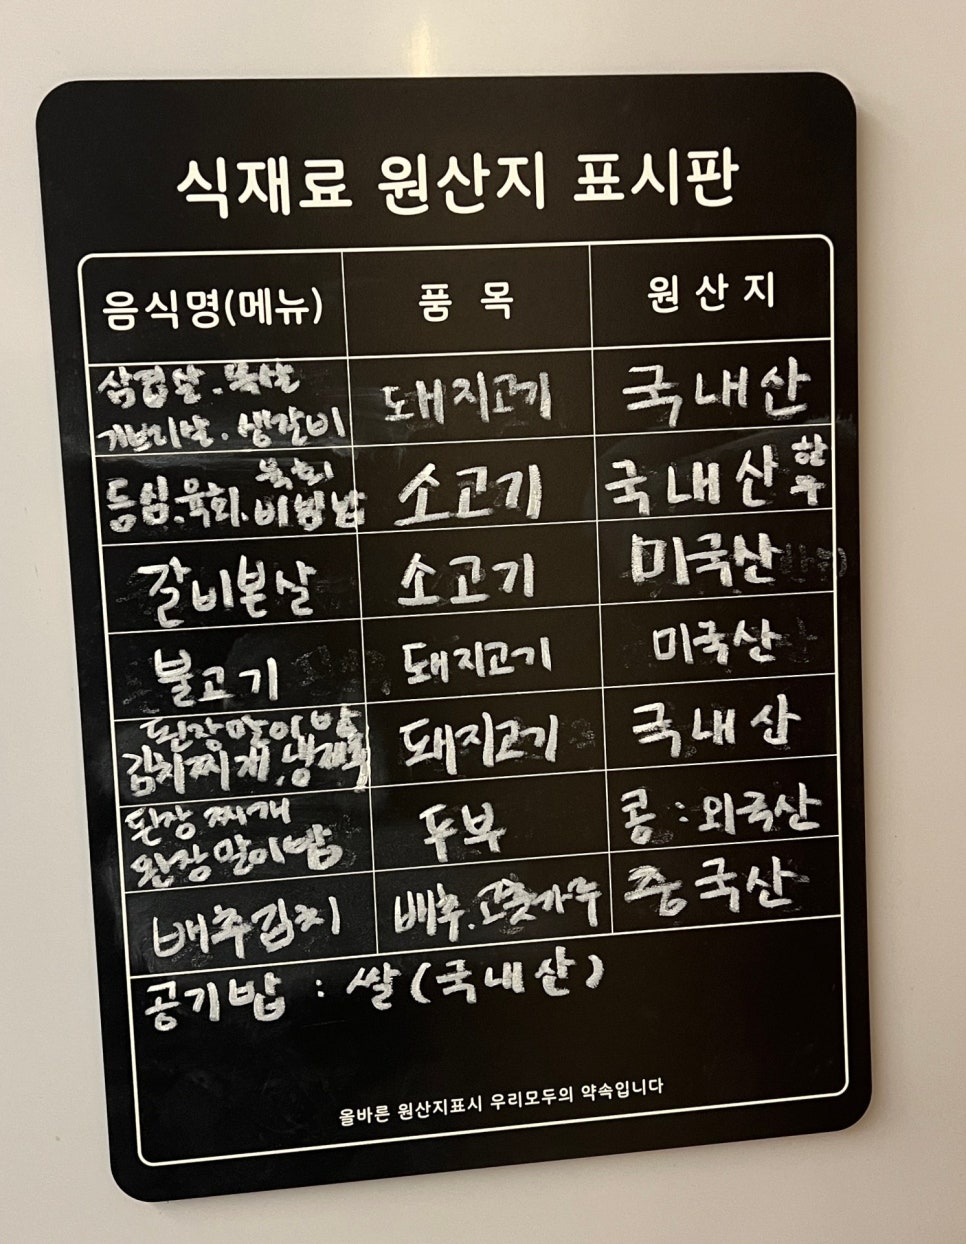 식재료 원산지 표시판
음식명(메뉴) 품 목 원 산 지
삼겹살. 목살
가브리살. 생갈비
돼지고기 국내산
육회
등심.육회.비빔밥
소고기 국내산 한우
갈비본살 소고기 미국산
불고기 돼지고기 미국산
된장말이밥
김치찌개,냉제육
돼지고기 국내산
된장찌개
된장말이밥
두부 콩 : 외국산
배추김치 배추.고춧가루 중국산
공기밥 : 쌀(국내산)
올바른 원산지표시 우리모두의 약속입니다